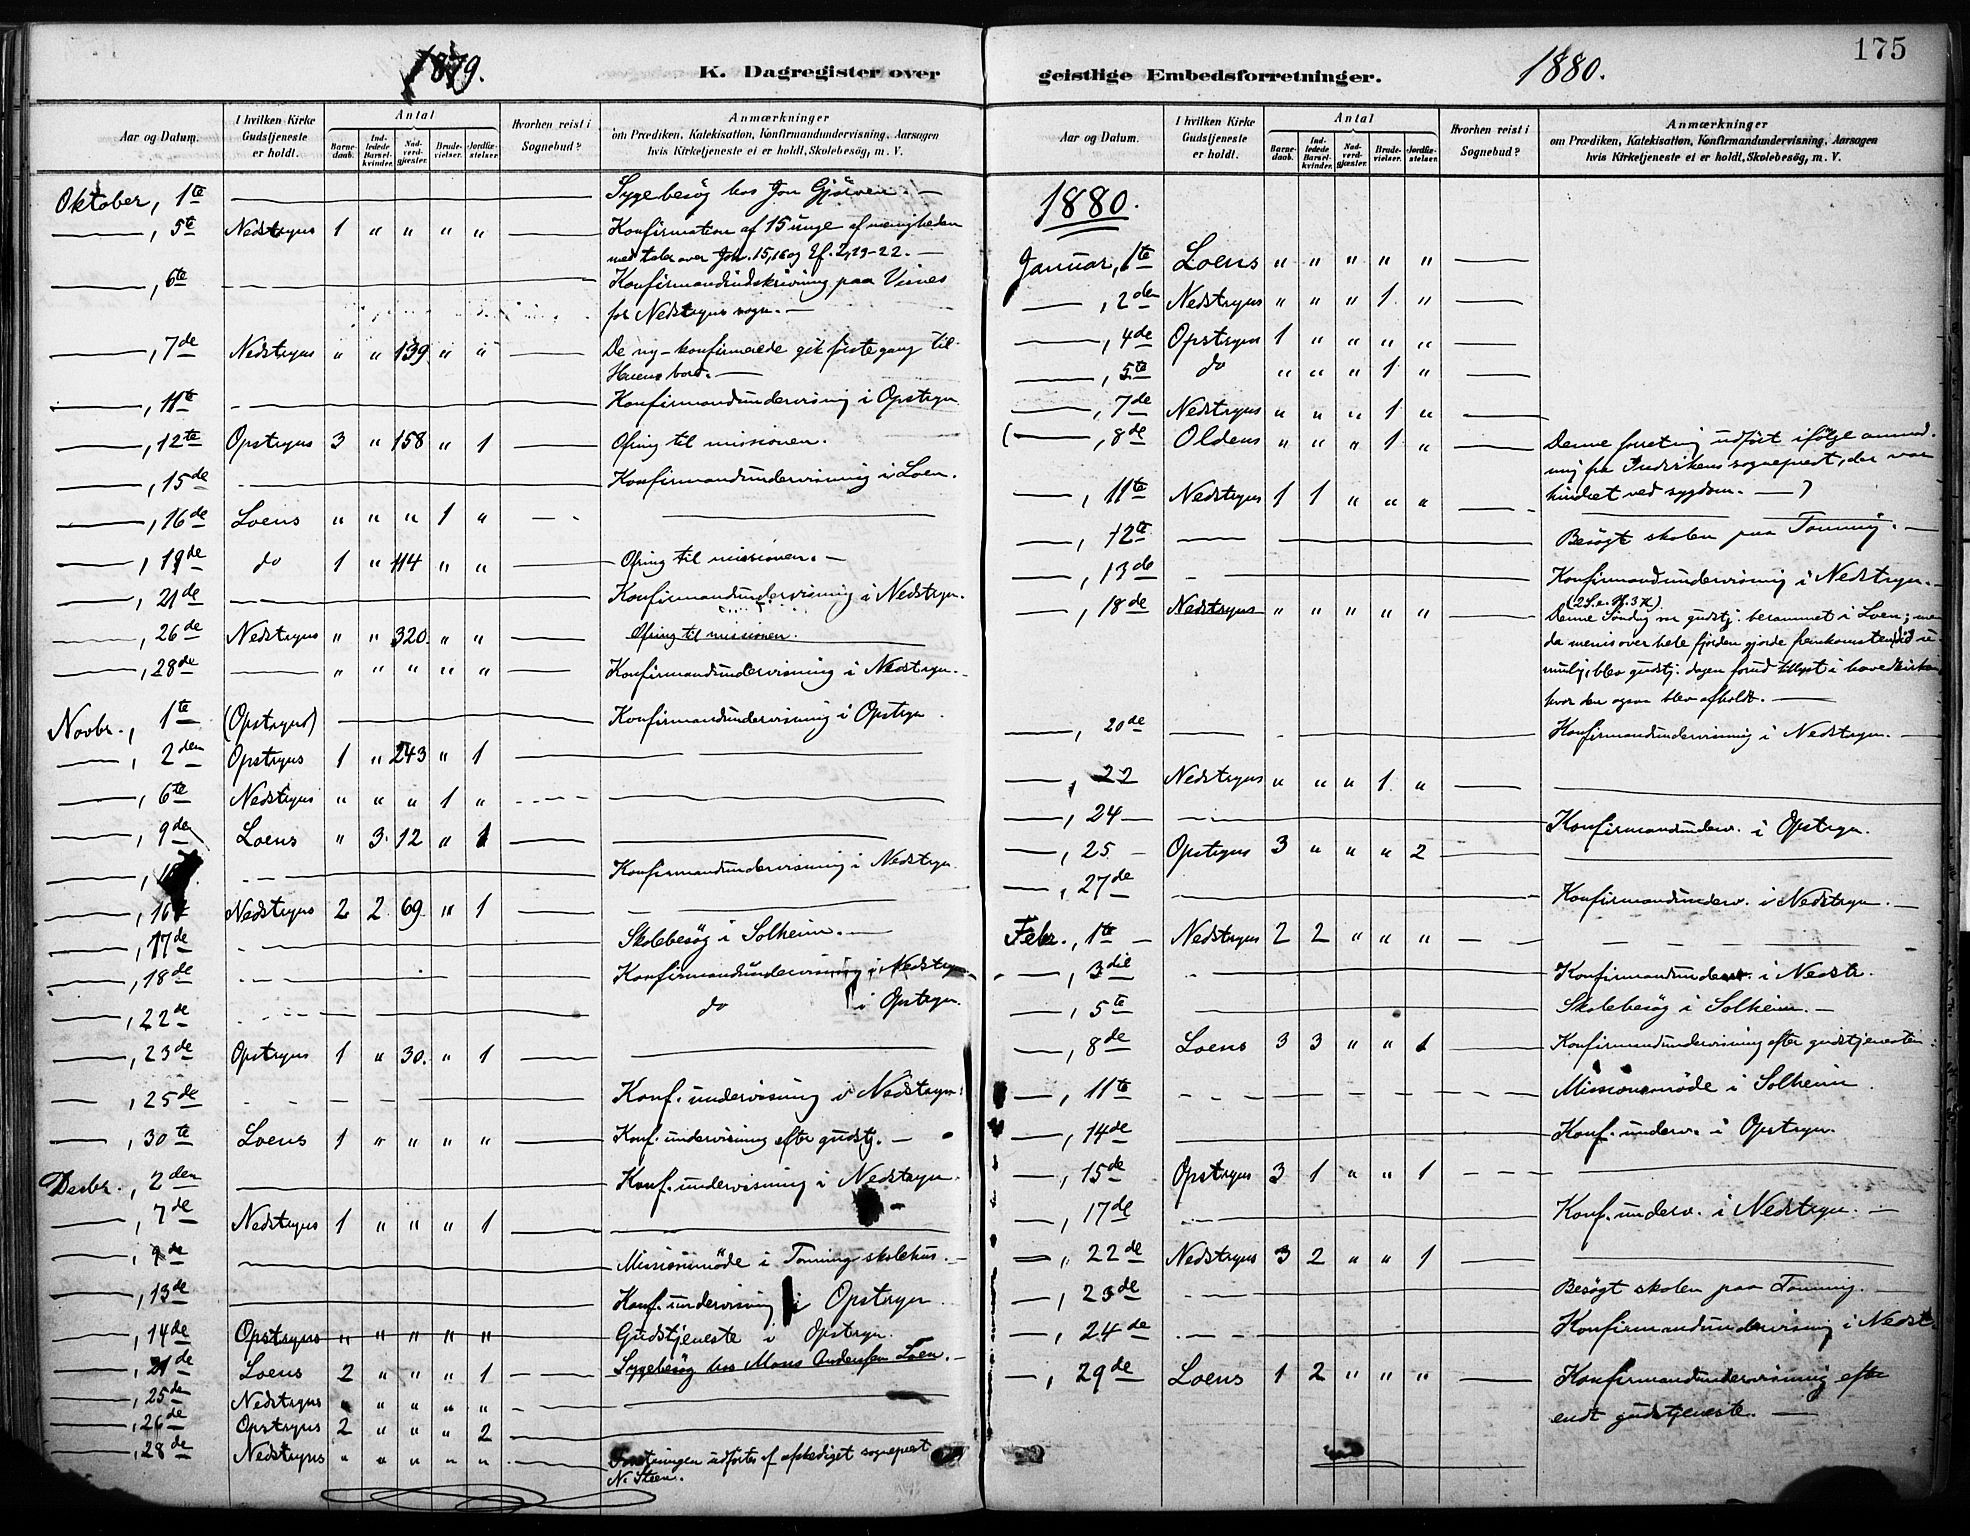 1879.
K. Dagregister over
Aar og Datum.
I hvilken Kirke Gudstjeneste er holdt.
Antal
Barnedaab.
Indledede Barselkvinder.
Nadverdgjæster.
Brudevielser.
Jordfæstelser.
Hvorhen reist i Sognebud?
Anmærkninger
om Prædiken, Katekisation, Konfirmandundervisning, Aarsagen
hvis Kirketjeneste ei er holdt, Skolebesög, m. V.
Oktober, 1te — Sygebesög hos Jon Gjörven. —
—, 5te Nedstryns 1 " " " " — Konfirmation af 15 unge af menigheden
med taler over Joh. 15,16 og Ef. 2,19-22. —
—, 6te — Konfirmandindskrivning paa Visnes
for Nedstryns sogn. —
—, 7de Nedstryns " " 139 " " — De ny-konfirmerede gik förste gang til
Herrens bord. —
—, 11te — Konfirmandundervisning i Opstryn
—, 12te Opstryns 3 " 158 " 1 — Ofring til missionen.
—, 15de — Konfirmandundervisning i Loen.
—, 16de Loens " " " 1 " — —
—, 19de do 1 " 114 " " — Ofring til missionen. —
—, 21de — Konfirmandundervisning i Nedstryn.
—, 26de Nedstryns " " 320 " " — Ofring til missionen.
—, 28de — " " " " " — Konfirmandundervisning i Nedstryn. —
Novbr., 1te (Opstryns) — Konfirmandundervisning i Opstryn
—, 2den Opstryns 1 " 243 " 1 — —
—, 6te Nedstryns " " " 1 " — —
—, 9de Loens " 3 12 " 1 — —
—, — Konfirmandundervisning i Nedstryn.
—, 16de Nedstryns 2 2 69 " 1 — —
—, 17de — Skolebesög i Solheim. —
—, 18de — Konfirmandundervisning i Nedstryn
—, 22de — do i Opstryn.
—, 23de Opstryns 1 " 30. " 1 — —
—, 25de — Konf. undervisning i Nedstryn.
—, 30te Loens 1 " " " " — Konf. undervisning efter gudstj. —
Desbr., 2den — Konf. undervisning i Nedstryn.
—, 7de Nedstryns 1 " " " 1 — —
—, 9de — Missionsmöde i Tonning skolehus. —
—, 13de — Konf. undervisning i Opstryn.
—, 14de Opstryns " " " " " Gudstjeneste i Opstryn.
—, 21de Loens 2 " " " 1 — Sygebesög hos Mons Andersen Loen. —
—, 25de Nedstryns " " " " " — —
—, 26de Opstryns 2 " " " 2 — —
—, 28de Nedstryns " " " " " — Forretningen udförtes af afskediget sogneprest
N. Steen.
geistlige Embedsforretninger.
1880.
175
Aar og Datum.
I hvilken Kirke Gudstjeneste er holdt.
Antal
Barnedaab.
Indledede Barselkvinder.
Nadverdgjæster.
Brudevielser.
Jordfæstelser.
Hvorhen reist i Sognebud?
Anmærkninger
om Prædiken, Katekisation, Konfirmandundervisning, Aarsagen
hvis Kirketjeneste ei er holdt, Skolebesög, m. V.
1880.
Januar, 1te Loens " " " " " —
—, 2den Nedstryns " " " 1 " —
—, 4de Opstryn 1 " " " " —
—, 5te do " " " 1 " —
—, 7de Nedstryns " " " 1 " —
(—, 8de Oldens " " " 1 " — Denne forretning udfört ifölge anmod-
ning fra Indvikens sogneprest, der var
hindret ved sygdom. —)
—, 11te Nedstryns 1 1 " " " — —
—, 12te — Besögt skolen paa Tonning. —
—, 13de — Konfirmandundervisning i Nedstryn. —
(2 S. e. H. 3 K.)
—, 18de Nedstryns " " " " " — Denne Söndag var gudstj. berammet i Loen; men
da menis over hele fjorden gjorde fremkomsten did u-
mulig, blev gudstj. dagen forud tillyst i hovedkirken
hvor den ogsaa blev afholdt. —
—, 20de — Konfirmandundervisning i Nedstryn. —
—, 22 Nedstryns " " " 1 " — —
—, 24 — Konfirmandunderv. i Opstryn.
—, 25 — Opstryns 3 " " " 2 — —
—, 27de — Konfirmandunderv. i Nedstryn. —
Febr., 1te — Nedstryns 2 2 " " " — —
—, 3die — Konfirmandunderv. i Nedstr.
—, 5te — Skolebesög i Solheim. —
—, 8de Loens 3 3 " " 1 — Konfirmandundervisning efter gudstjenesten.
—, 11te — Missionsmöde i Solheim.
—, 14de — Konf. underv. i Opstryn.
—, 15de Opstryns 3 1 " " 1 — —
—, 17de — Konf. underv. i Nedstryn. —
—, 22de Nedstryns 3 2 " " 1 — —
—, 23de — Besögt skolen paa Tonning.
—, 24de — Konfirmandundervisning i Nedstr.
—, 29de Loens 1 2 " " " — Konfirmandundervisning efter
endt gudstjeneste. —